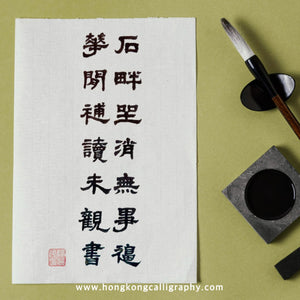 石畔坐消無事福
華閒補讀未觀書
www.hongkongcalligraphy.com